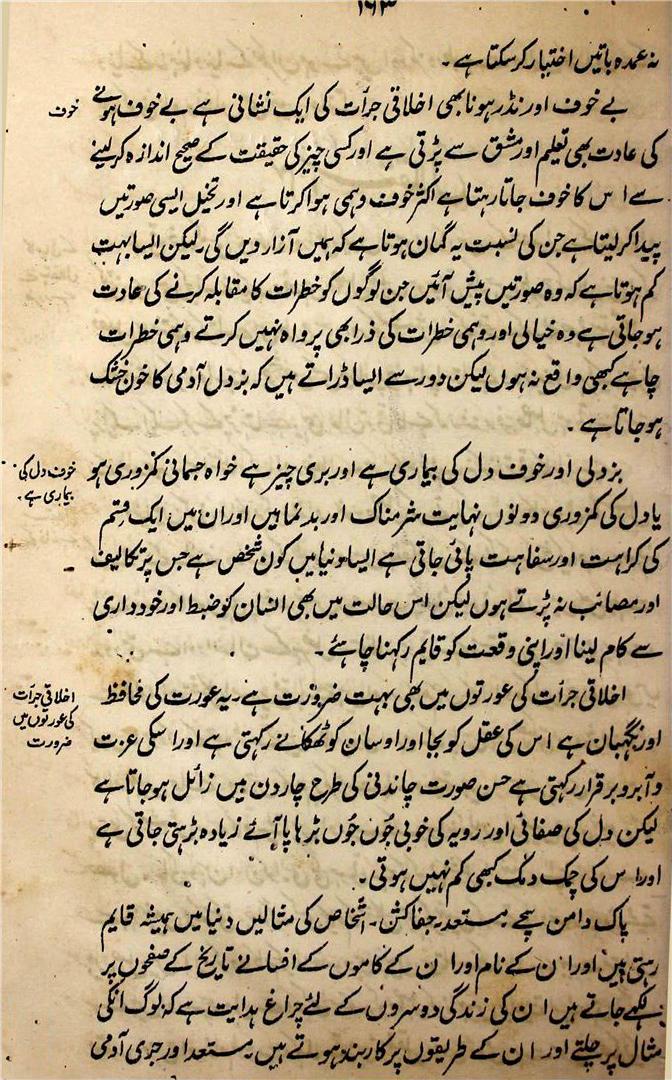 ۱۶۳
نہ عمدہ باتیں اختیار کر سکتا ہے۔
خوف
بے خوف اور نڈر ہونا بھی اخلاقی جرأت کی ایک نشانی ہے بے خوف ہونے
کی عادت بھی تعلیم اور مشق سے پڑتی ہے اور کسی چیز کی حقیقت کے صحیح اندازہ کر لینے
سے اس کا خوف جاتا رہتا ہے اکثر خوف وہمی ہوا کرتا ہے اور تخیل ایسی صورتیں
پیدا کر لیتا ہے جن کی نسبت یہ گمان ہوتا ہے کہ ہمیں آزار دیں گی۔ لیکن ایسا بہت
کم ہوتا ہے کہ وہ صورتیں پیش آئیں جن لوگوں کو خطرات کا مقابلہ کرنے کی عادت
ہو جاتی ہے وہ خیالی اور وہمی خطرات کی ذرا بھی پرواہ نہیں کرتے وہمی خطرات
چاہے کبھی واقع نہ ہوں لیکن دور سے ایسا ڈراتے ہیں کہ بزدل آدمی کا خون خشک
ہو جاتا ہے۔
خوف دل کی
بیماری ہے۔
بزدلی اور خوف دل کی بیماری ہے اور بری چیز ہے خواہ جسمانی کمزوری ہو
یا دل کی کمزوری دونوں نہایت شرمناک اور بدنما ہیں اور ان میں ایک قسم
کی کراہت اور سفاہت پائی جاتی ہے ایسا دنیا میں کون شخص ہے جس پر تکالیف
اور مصائب نہ پڑتے ہوں لیکن اس حالت میں بھی انسان کو ضبط اور خودداری
سے کام لینا اور اپنی وقعت کو قایم رکہنا چاہئے۔
اخلاقی جرأت
کی عورتوں میں
ضرورت
اخلاقی جرأت کی عورتوں میں بھی بہت ضرورت ہے۔ یہ عورت کی محافظ
اور نگہبان ہے اس کی عقل کو بجا اور اوسان کو ٹھکانے رکہتی ہے اور اسکی عزت
و آبرو برقرار رکہتی ہے حسن صورت چاندنی کی طرح چار دن میں زائل ہو جاتا ہے
لیکن دل کی صفائی اور رویہ کی خوبی جوں جوں بڑہاپا آئے زیادہ بڑہتی جاتی ہے
اور اس کی چمک دمک کبھی کم نہیں ہوتی۔
پاک دامن سچے۔ مستعد۔ جفاکش۔ اشخاص کی مثالیں دنیا میں ہمیشہ قایم
رہتی ہیں اور ان کے نام اور ان کے کاموں کے افسانے تاریخ کے صفحوں پر
لکہے جاتے ہیں ان کی زندگی دوسروں کے لئے چراغ ہدایت ہے کہ لوگ انکی
مثال پر چلتے اور ان کے طریقوں پر کاربند ہوتے ہیں۔ مستعد اور جری آدمی